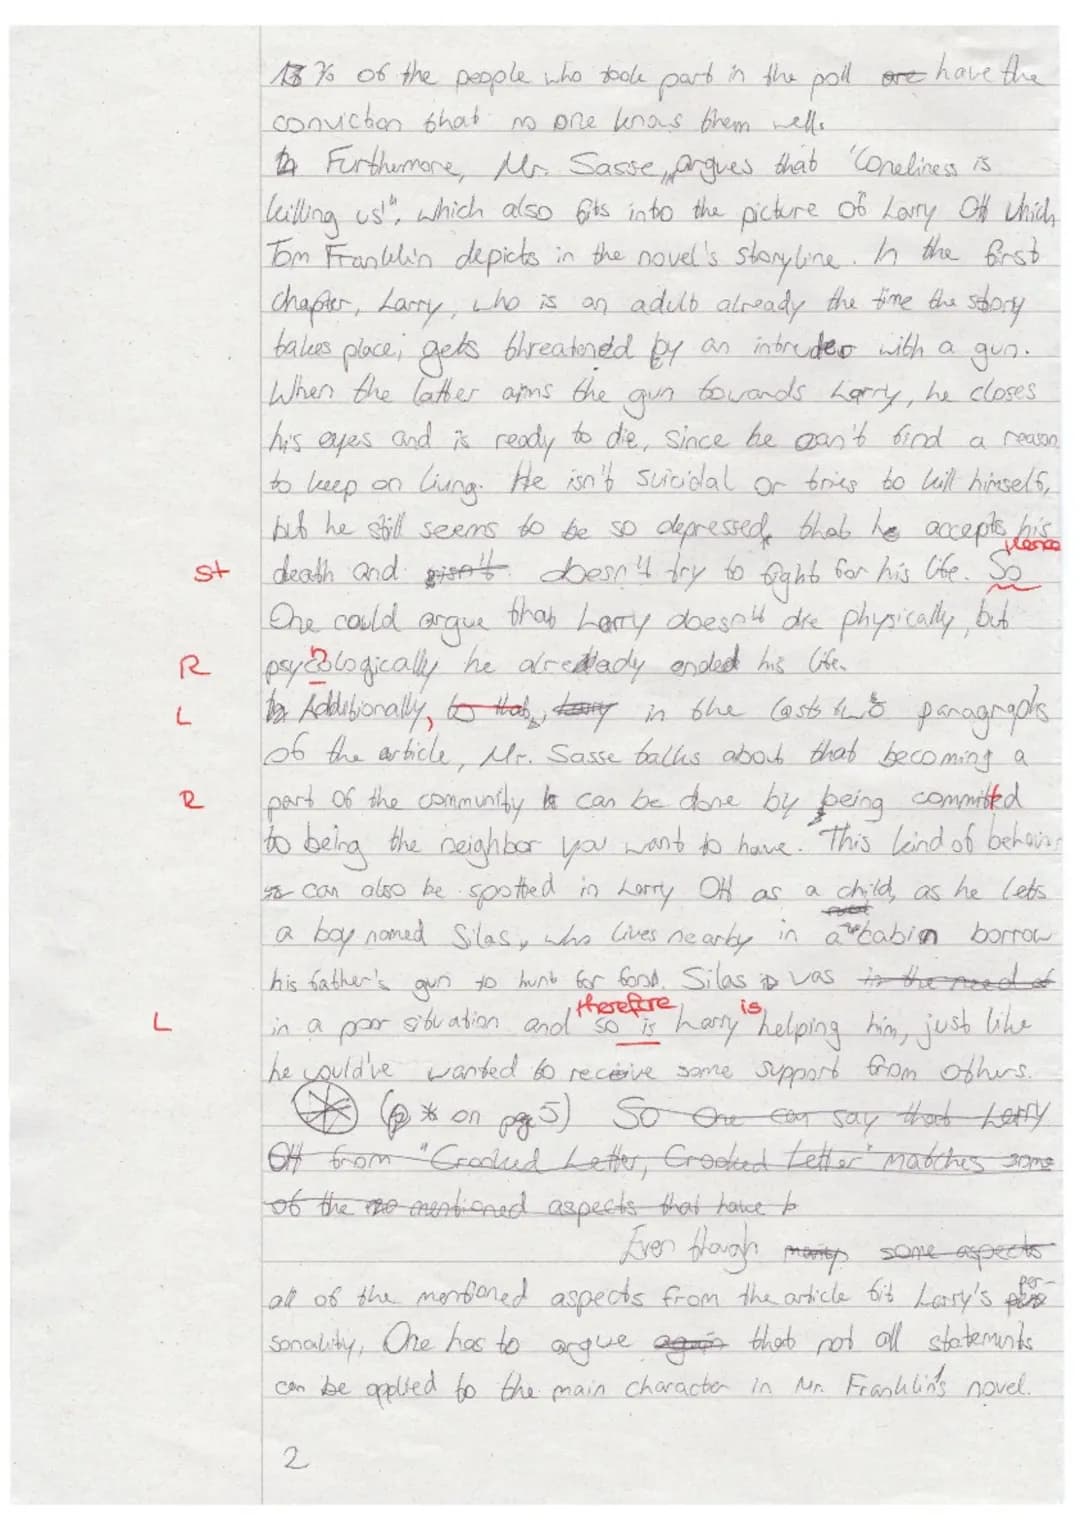 % of the people who took part in the poll are have the
conviction that no one knows them well.
Furthermore, Mr. Sasse, argues that "loneliness is
killing us", which also fits into the picture of Larry Ott which
Tom Franklin depicts in the novel's storyline. In the first
chapter, Larry, who is an adult already the time the story
takes place, gets threatened by an intruder with a gun.
When the latter aims the gun towards Larry, he closes
his eyes and is ready to die, since he can't find a reason
to keep on living. He isn't suicidal or tries to kill himself,
but he still seems to be so depressed, that he accepts his
Hence
st death and isn't doesn't try to fight for his life. So
One could argue that Larry doesn't die physically, but
h
R psycologically he already ended his life.
L Additionally, to that, Larry in the last two paragraphs
of the article, Mr. Sasse talks about that becoming a
R part of the community can be done by being committed
to being the neighbor you want to have. This kind of behavior
can also be spotted in Larry Ott as a child, as he lets
a boy named Silas, who lives nearby in a cabin borrow
his father's gun to hunt for food. Silas was in the need of
therefore is
L in a poor situation and so is Larry helping him, just like
he would've wanted to receive some support from others.
(* on pg 5) So One can say that Larry
Ott from "Crooked Letter, Crooked Letter" matches some
of the mentioned aspects that have b
Even though many some aspects
per-
all of the mentioned aspects from the article fit Larry's
sonality, One has to argue again that not all statements
can be applied to the main character in Mr. Franklin's novel.
2